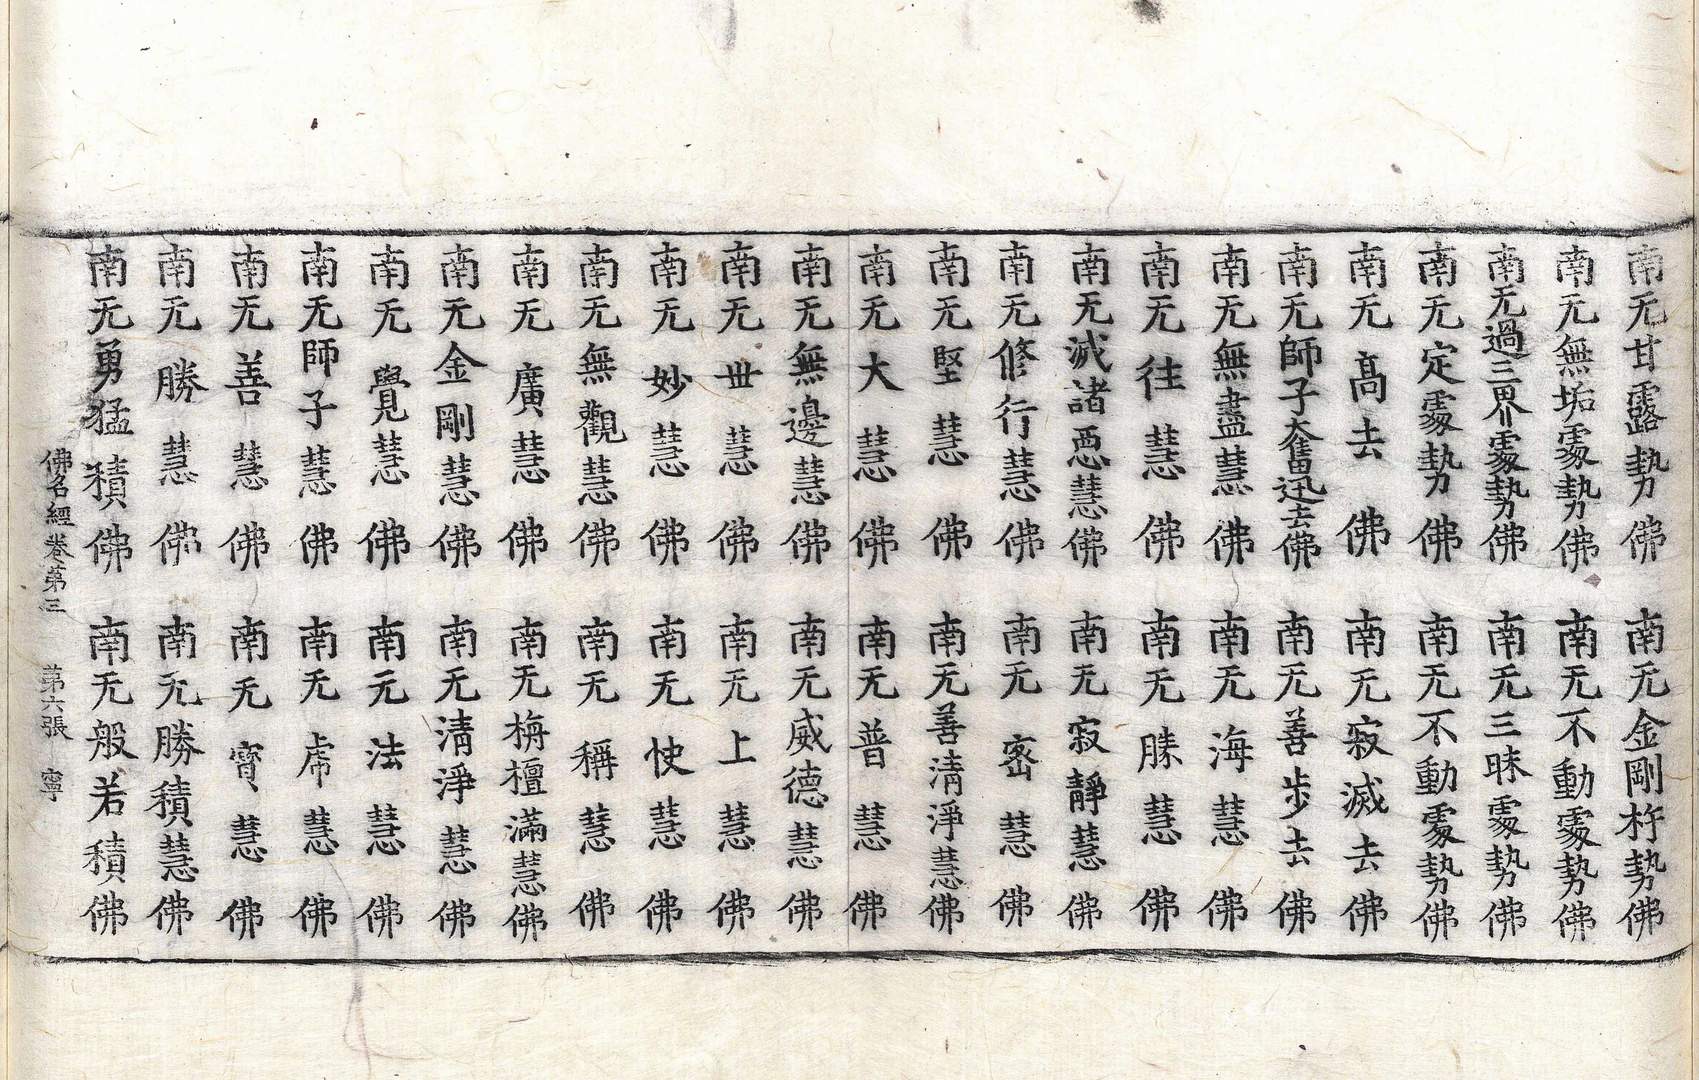 南无甘露勢佛 南无金剛杵勢佛
南无無垢䖏勢佛 南无不動䖏勢佛
南无過三界䖏勢佛 南无三昧䖏勢佛
南无定䖏勢佛 南无不動䖏勢佛
南无髙去佛 南无寂滅去佛
南无師子奮迅去佛 南无善步去佛
南无無盡慧佛 南无海慧佛
南无住慧佛 南无勝慧佛
南无滅諸惡慧佛 南无寂靜慧佛
南无修行慧佛 南无密慧佛
南无堅慧佛 南无善清淨慧佛
南无大慧佛 南无普慧佛
南无無邊慧佛 南无威德慧佛
南无世慧佛 南无上慧佛
南无妙慧佛 南无快慧佛
南无無觀慧佛 南无稱慧佛
南无廣慧佛 南无栴檀滿慧佛
南无金剛慧佛 南无清淨慧佛
南无覺慧佛 南无法慧佛
南无師子慧佛 南无虎慧佛
南无善慧佛 南无寳慧佛
南无勝慧佛 南无勝積慧佛
南无勇猛積佛 南无般若積佛
佛名經卷第三 第六張 寧